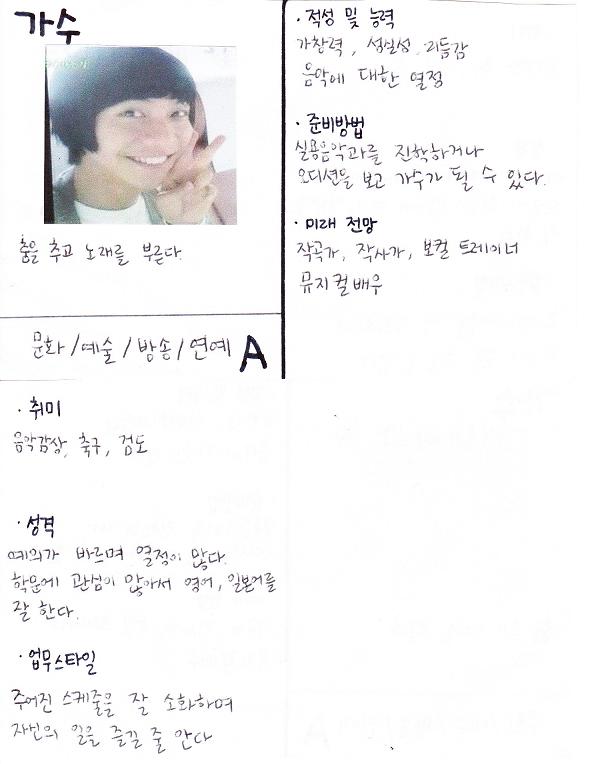 가수
춤을 추고 노래를 부른다.
문화/예술/방송/연예 A
· 적성 및 능력
가창력, 성실성, 리듬감
음악에 대한 열정
· 준비방법
실용음악과를 진학하거나
오디션을 보고 가수가 될 수 있다.
· 미래 전망
작곡가, 작사가, 보컬 트레이너
뮤지컬배우
· 취미
음악감상, 축구, 검도
· 성격
예의가 바르며 열정이 많다.
학문에 관심이 많아서 영어, 일본어를
잘 한다.
· 업무스타일
주어진 스케줄을 잘 소화하며
자신의 일을 즐길 줄 안다